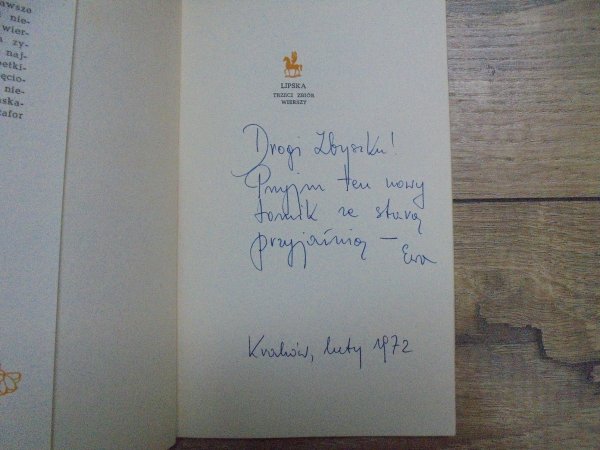 awsze
nie-
wier-
zy-
naj-
petki-
ęcio-
nie-
aska-
tafor
LIPSKA
TRZECI ZBIÓR
WIERSZY
Drogi Zbyszku!
Przyjm ten nowy
tomik ze starą
przyjaźnią —
Ewa
Kraków, luty 1972